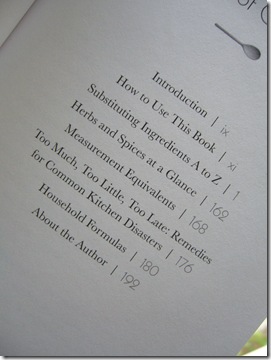 of C
Introduction | ix
How to Use This Book | xi
Substituting Ingredients A to Z | 1
Herbs and Spices at a Glance | 162
Measurement Equivalents | 168
Too Much, Too Little, Too Late: Remedies
for Common Kitchen Disasters | 176
Household Formulas | 180
About the Author | 192